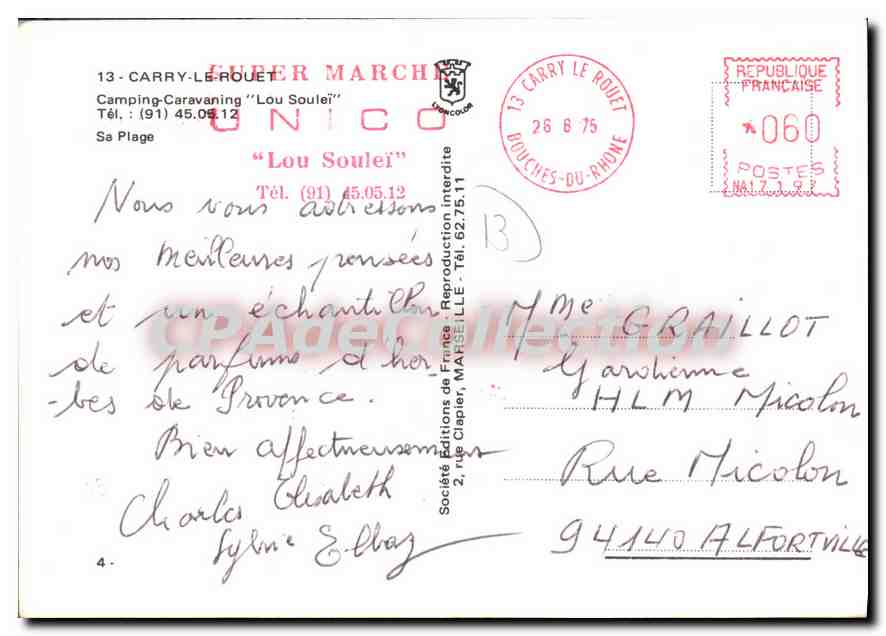 13 - CARRY-LE-ROUET
Camping-Caravaning "Lou Souleï"
Tél. : (91) 45.05.12
Sa Plage
SUPER MARCHE
UNICO
"Lou Souleï"
Tél. (91) 45.05.12
LYONCOLOR
13 CARRY LE ROUET
26 6 75
BOUCHES-DU-RHONE
REPUBLIQUE
FRANCAISE
060
POSTES
13
Nous vous adressons
nos meilleures pensées
et un échantillon
de parfums d'her-
-bes de Provence.
Bien affectueusement
Charles Elisabeth
Sylvie Elbaz
4 -
Société Editions de France - Reproduction interdite
2, rue Clapier, MARSEILLE - Tél. 62.75.11
Mme GRAILLOT
Gardienne
HLM Micolon
Rue Micolon
94140 ALFORTVILLE
CPAdeCollection